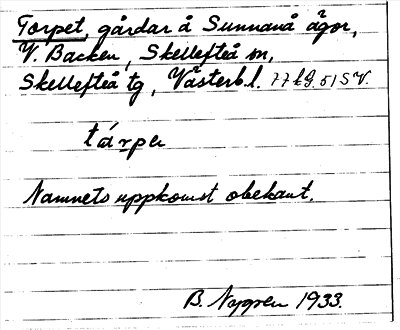 Torpet, gårdar å Sunnanå ägor,
V. Backen, Skellefteå sn,
Skellefteå tg, Västerb. l.
tárpa
Namnets uppkomst obekant.
B. Nygren 1933.